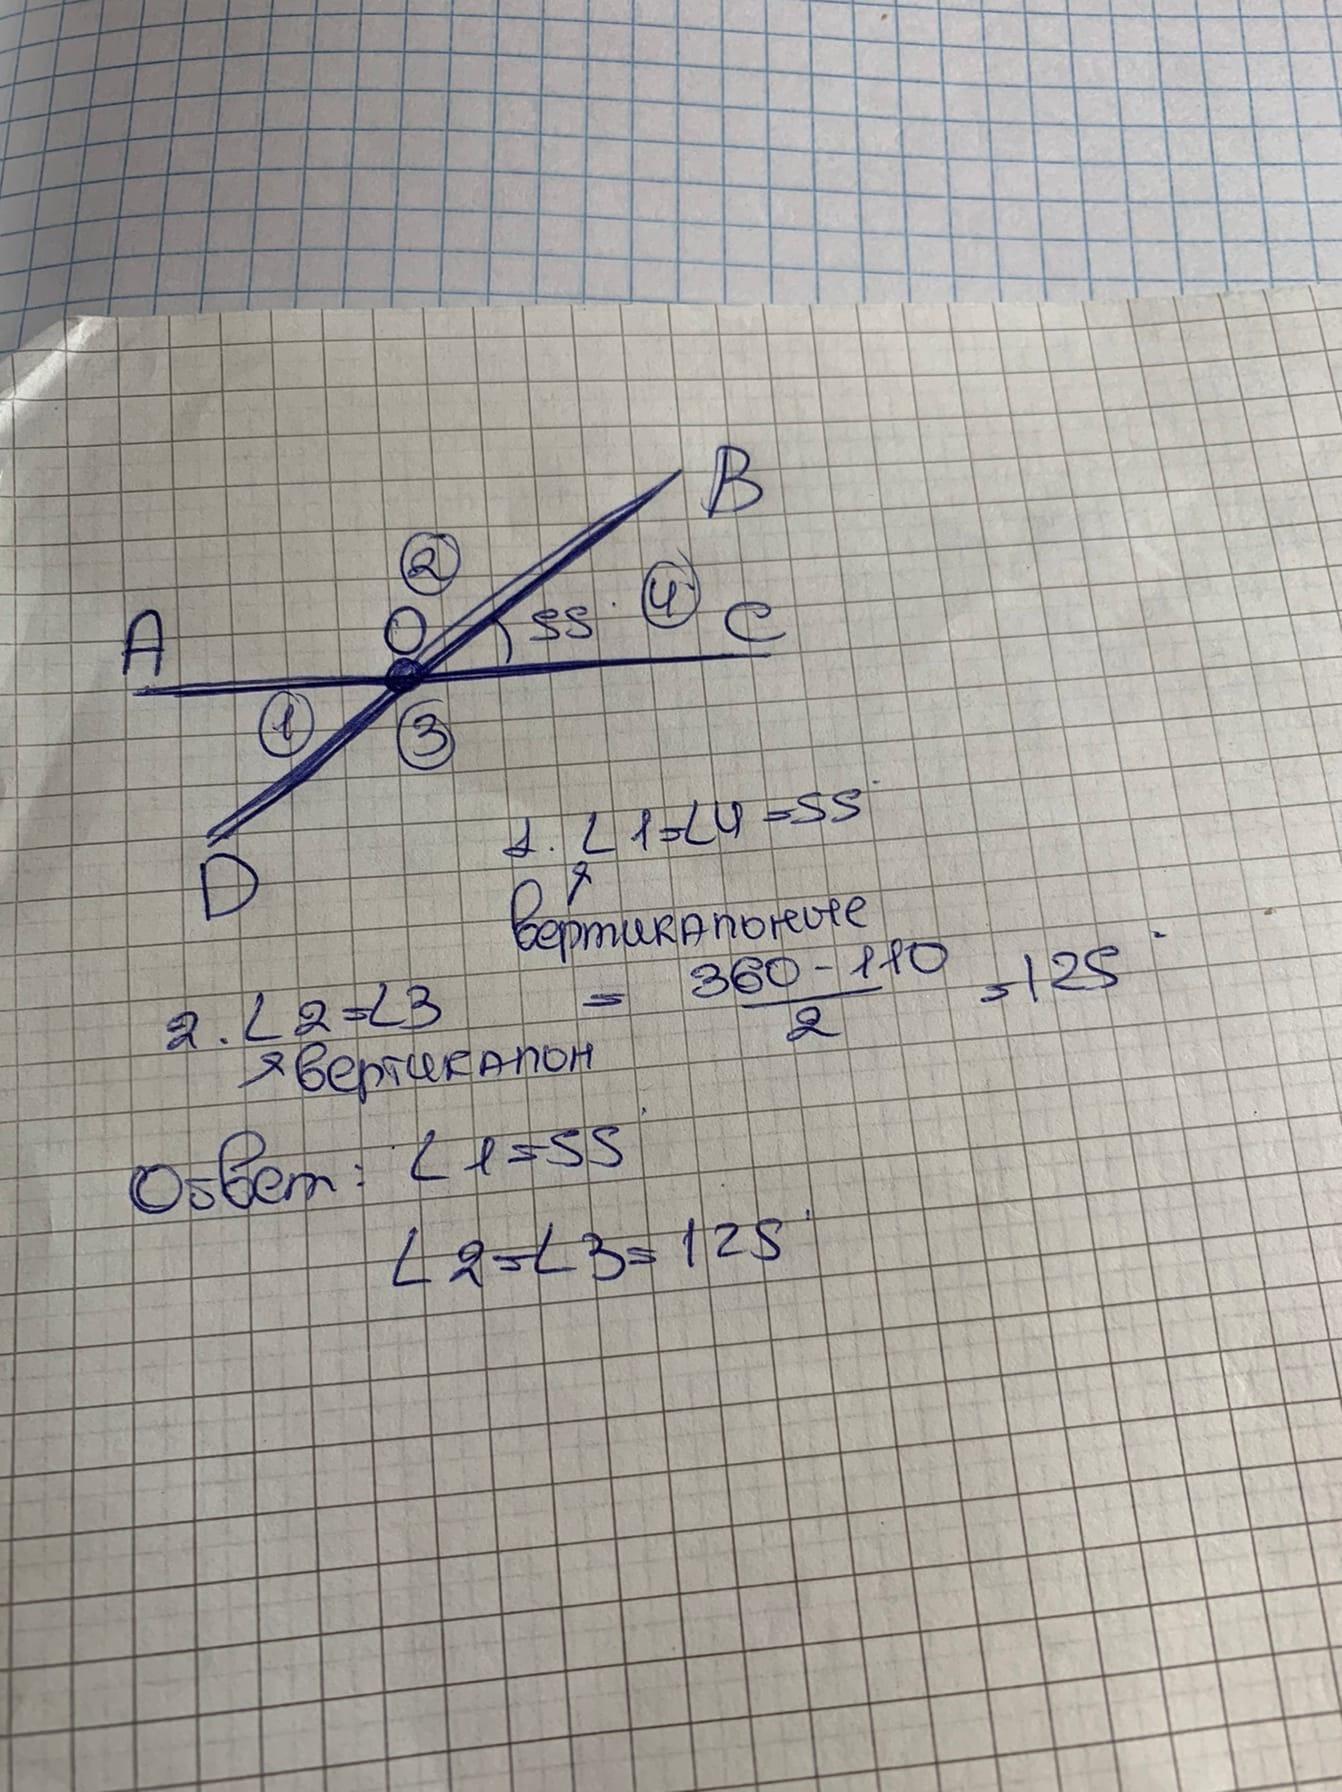 B
2
4
A
O
55°
C
1
3
D
1. ∠1=∠4=55°
вертикальные
2. ∠2=∠3 = (360-110)/2 =125°
вертикальн
Ответ: ∠1=55°
∠2=∠3=125°